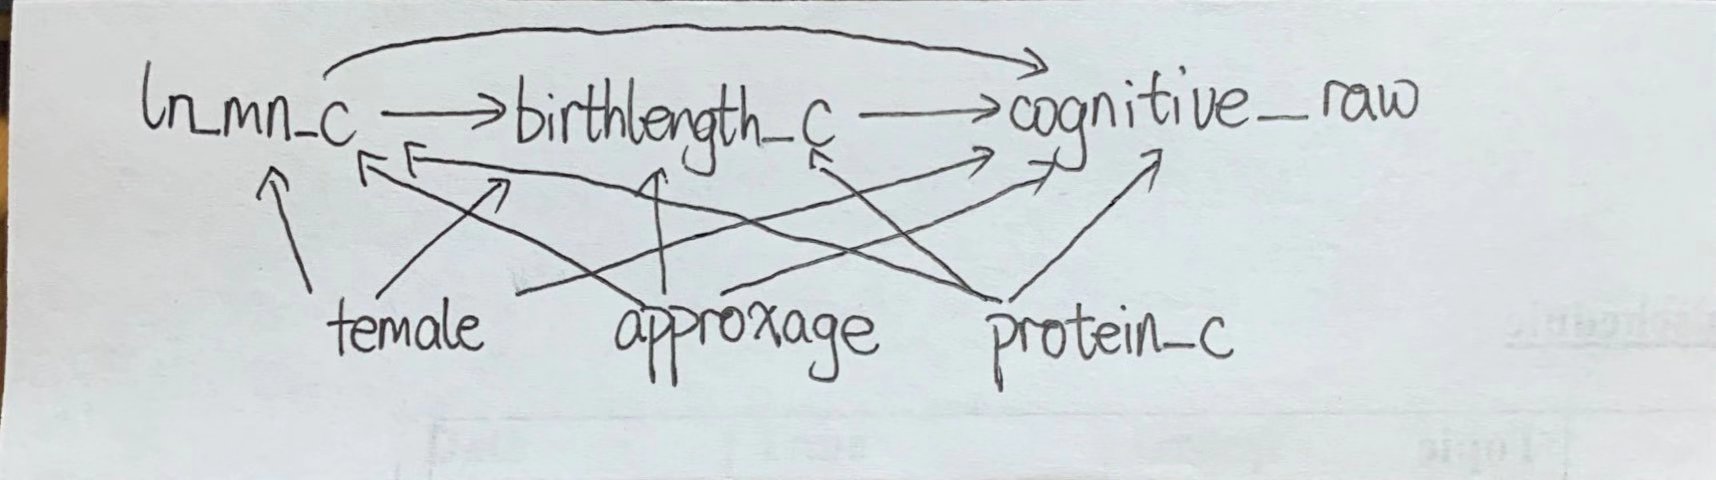 ln_mn_c birthlength_c cognitive_raw
female approxage protein_c